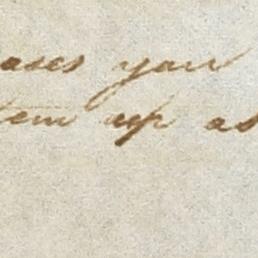 ases you
tem up as